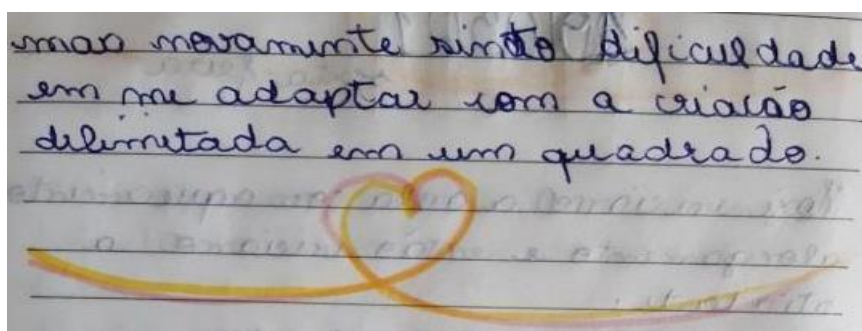 mas novamente sinto dificuldade
em me adaptar com a criação
delimitada em um quadrado.